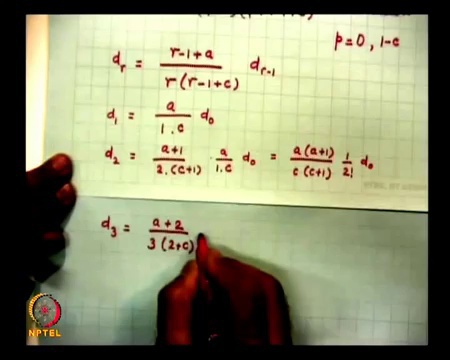 p=0, 1-c
d_r = (r-1+a) / (r(r-1+c)) d_{r-1}
d_1 = a / (1.c) d_0
d_2 = (a+1) / (2.(c+1)) . a / (1.c) d_0 = (a(a+1)) / (c(c+1)) 1 / 2! d_0
d_3 = (a+2) / (3(2+c))
NPTEL